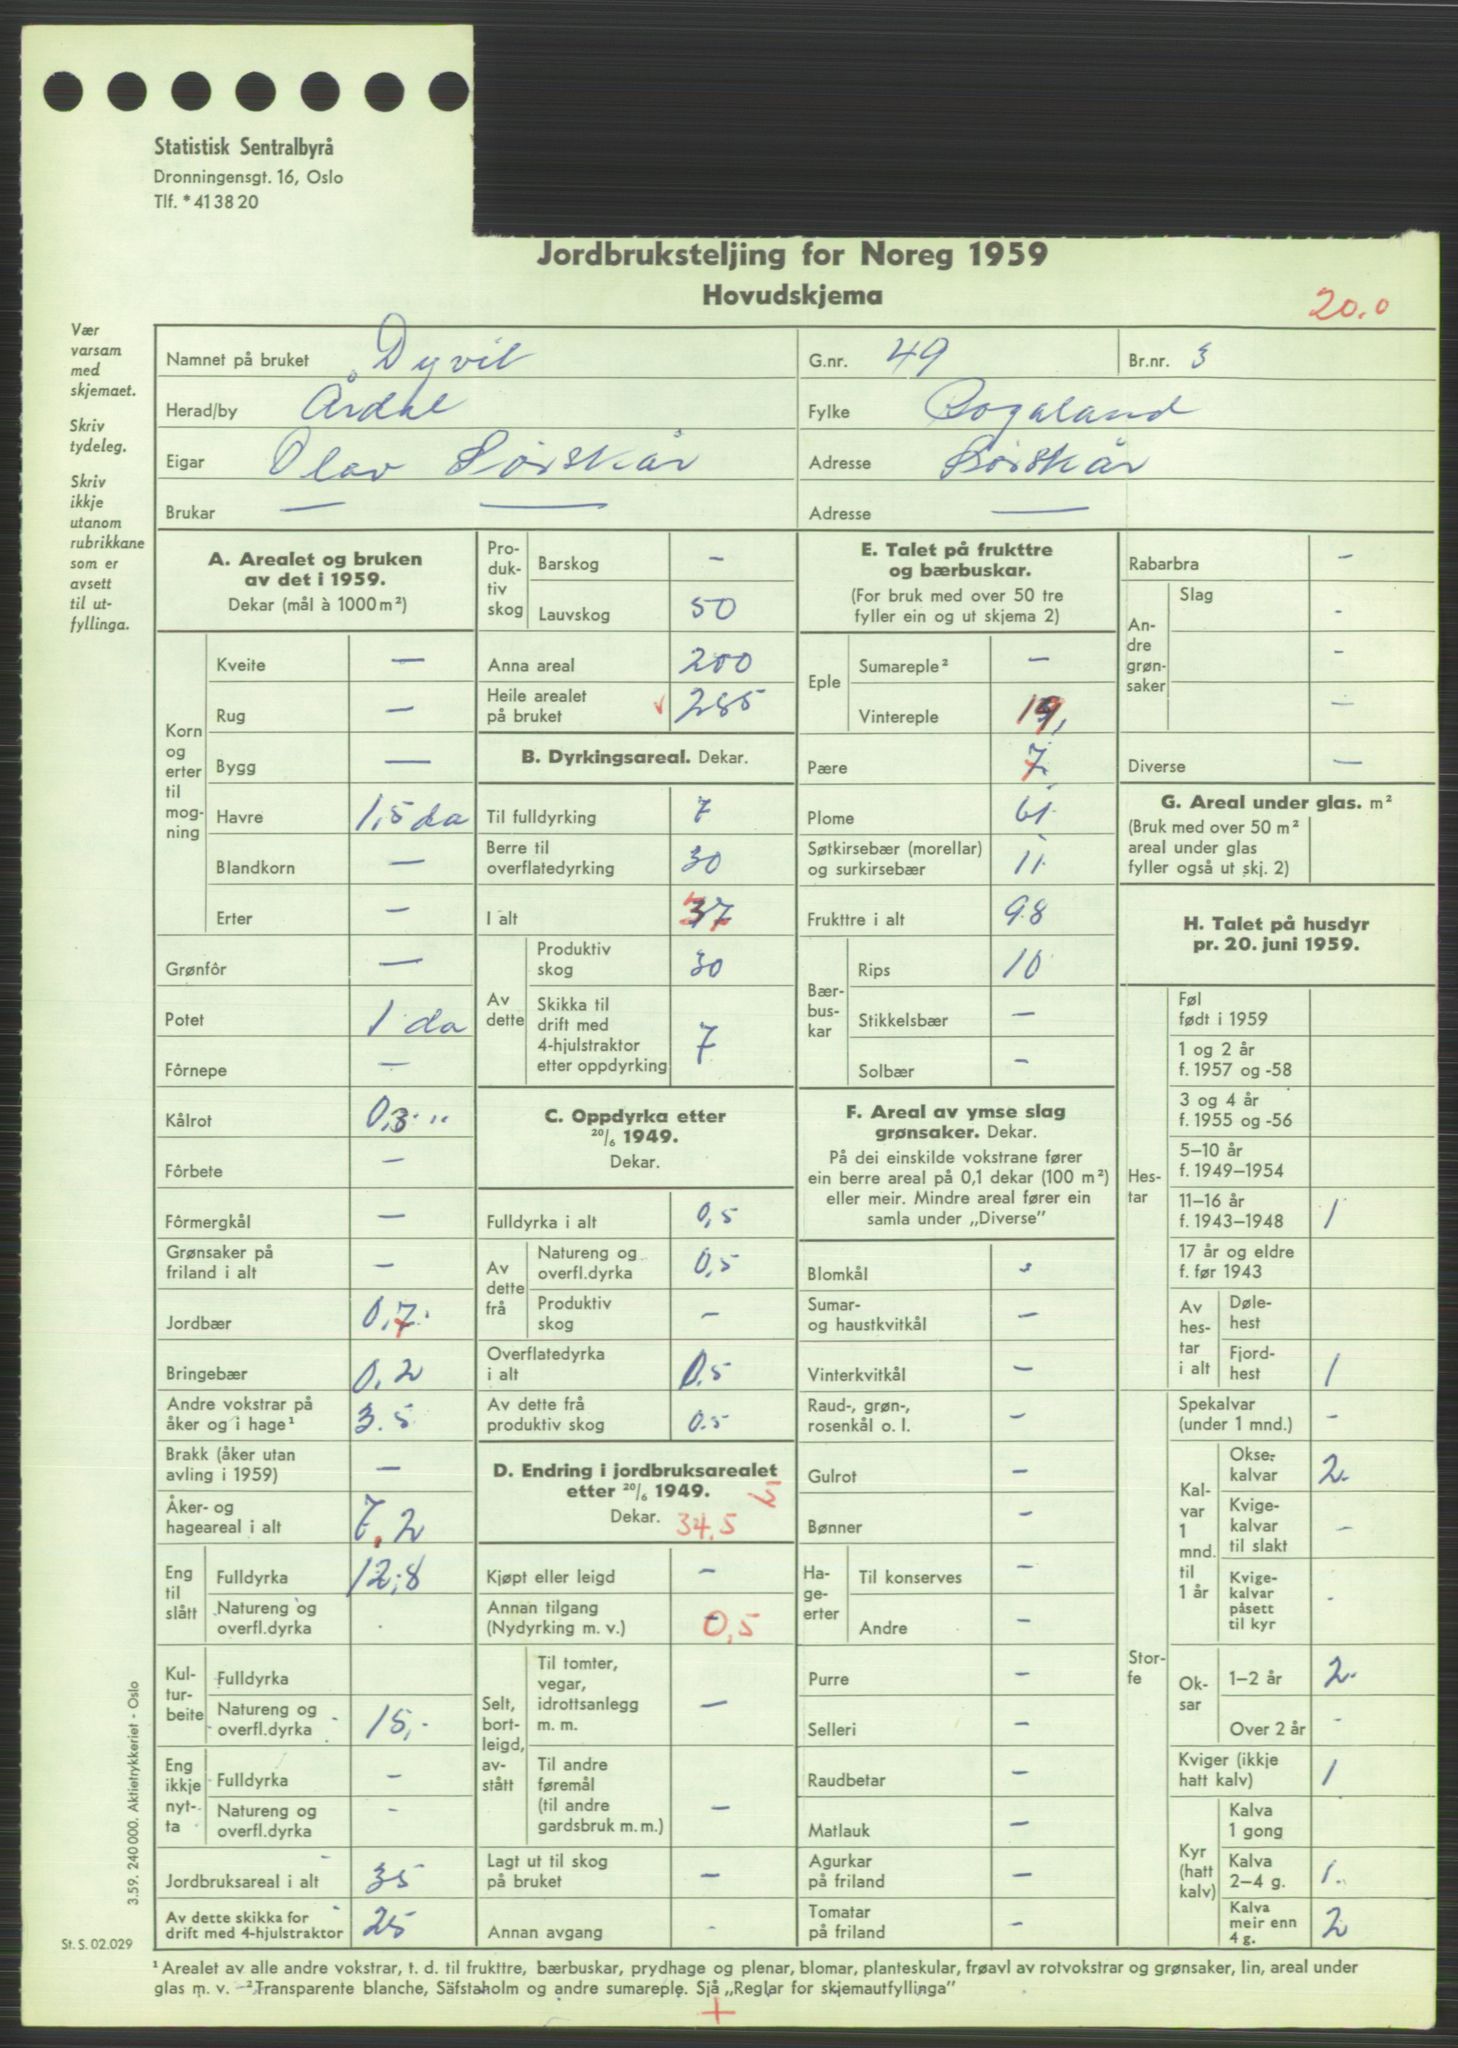 Statistisk Sentralbyrå
Dronningensgt. 16, Oslo
Tlf. * 41 38 20
Jordbruksteljing for Noreg 1959
Hovudskjema
20.0
Vær varsam med skjemaet.
Skriv tydeleg.
Skriv ikkje utanom rubrikkane som er avsett til ut-fyllinga.
Namnet på bruket Dyvik G.nr. 49 Br.nr. 3
Herad/by Årdal Fylke Rogaland
Eigar Olav Sørskår Adresse Sørskår
Brukar — — Adresse —
A. Arealet og bruken av det i 1959.
Dekar (mål à 1000 m²)
Korn og erter til mog-ning
Kveite —
Rug —
Bygg —
Havre 1,5 da
Blandkorn —
Erter —
Grønfôr —
Potet 1 da
Fôrnepe —
Kålrot 0,3 "
Fôrbete —
Fôrmergkål —
Grønsaker på friland i alt —
Jordbær 0,7
Bringebær 0,2
Andre vokstrar på åker og i hage¹ 3.5
Brakk (åker utan avling i 1959) —
Åker- og hageareal i alt 7,2
Eng til slått
Fulldyrka 12,8
Natureng og overfl.dyrka
Kul-tur-beite
Fulldyrka
Natureng og overfl.dyrka 15,-
Eng ikkje nyt-ta
Fulldyrka -
Natureng og overfl.dyrka -
Jordbruksareal i alt 35
Av dette skikka for drift med 4-hjulstraktor 25
Pro-duk-tiv skog
Barskog —
Lauvskog 50
Anna areal 200
Heile arealet på bruket 285
B. Dyrkingsareal. Dekar.
Til fulldyrking 7
Berre til overflatedyrking 30
I alt 37
Av dette
Produktiv skog 30
Skikka til drift med 4-hjulstraktor etter oppdyrking 7
C. Oppdyrka etter 20/6 1949.
Dekar.
Fulldyrka i alt 0,5
Av dette frå
Natureng og overfl.dyrka 0,5
Produktiv skog —
Overflatedyrka i alt 0.5
Av dette frå produktiv skog 0.5
D. Endring i jordbruksarealet etter 20/6 1949.
Dekar. 34,5
Kjøpt eller leigd —
Annan tilgang (Nydyrking m. v.) 0,5
Selt, bort-leigd, av-stått
Til tomter, vegar, idrottsanlegg m. m. —
Til andre føremål (til andre gardsbruk m. m.) —
Lagt ut til skog på bruket —
Annan avgang -
E. Talet på frukttre og bærbuskar.
(For bruk med over 50 tre fyller ein og ut skjema 2)
Eple
Sumareple² —
Vintereple 19,
Pære 7
Plome 61
Søtkirsebær (morellar) og surkirsebær 11
Frukttre i alt 98
Bær-bus-kar
Rips 10
Stikkelsbær —
Solbær —
F. Areal av ymse slag grønsaker. Dekar.
På dei einskilde vokstrane fører ein berre areal på 0,1 dekar (100 m²) eller meir. Mindre areal fører ein samla under „Diverse”
Blomkål -
Sumar- og haustkvitkål —
Vinterkvitkål —
Raud-, grøn-, rosenkål o. l. —
Gulrot —
Bønner —
Ha-ge-erter
Til konserves —
Andre —
Purre —
Selleri —
Raudbetar —
Matlauk —
Agurkar på friland —
Tomatar på friland —
Rabarbra —
An-dre grøn-saker
Slag
-
-
—
Diverse —
G. Areal under glas. m²
(Bruk med over 50 m² areal under glas fyller også ut skj. 2)
H. Talet på husdyr pr. 20. juni 1959.
Hes-tar
Føl født i 1959
1 og 2 år f. 1957 og -58
3 og 4 år f. 1955 og -56
5–10 år f. 1949–1954
11–16 år f. 1943–1948 1
17 år og eldre f. før 1943
Av hes-tar i alt
Døle-hest
Fjord-hest 1
Stor-fe
Spekalvar (under 1 mnd.) -
Kal-var 1 mnd. til 1 år
Okse-kalvar 2
Kvige-kalvar til slakt —
Kvige-kalvar påsett til kyr -
Ok-sar
1–2 år 2
Over 2 år -
Kviger (ikkje hatt kalv) 1
Kyr (hatt kalv)
Kalva 1 gong
Kalva 2–4 g. 1
Kalva meir enn 4 g. 2
3.59. 240 000. Aktietrykkeriet - Oslo
St. S. 02.029
¹ Arealet av alle andre vokstrar, t. d. til frukttre, bærbuskar, prydhage og plenar, blomar, planteskular, frøavl av rotvokstrar og grønsaker, lin, areal under
glas m. v. — ² Transparente blanche, Säfstaholm og andre sumareple. Sjå „Reglar for skjemautfyllinga”
+